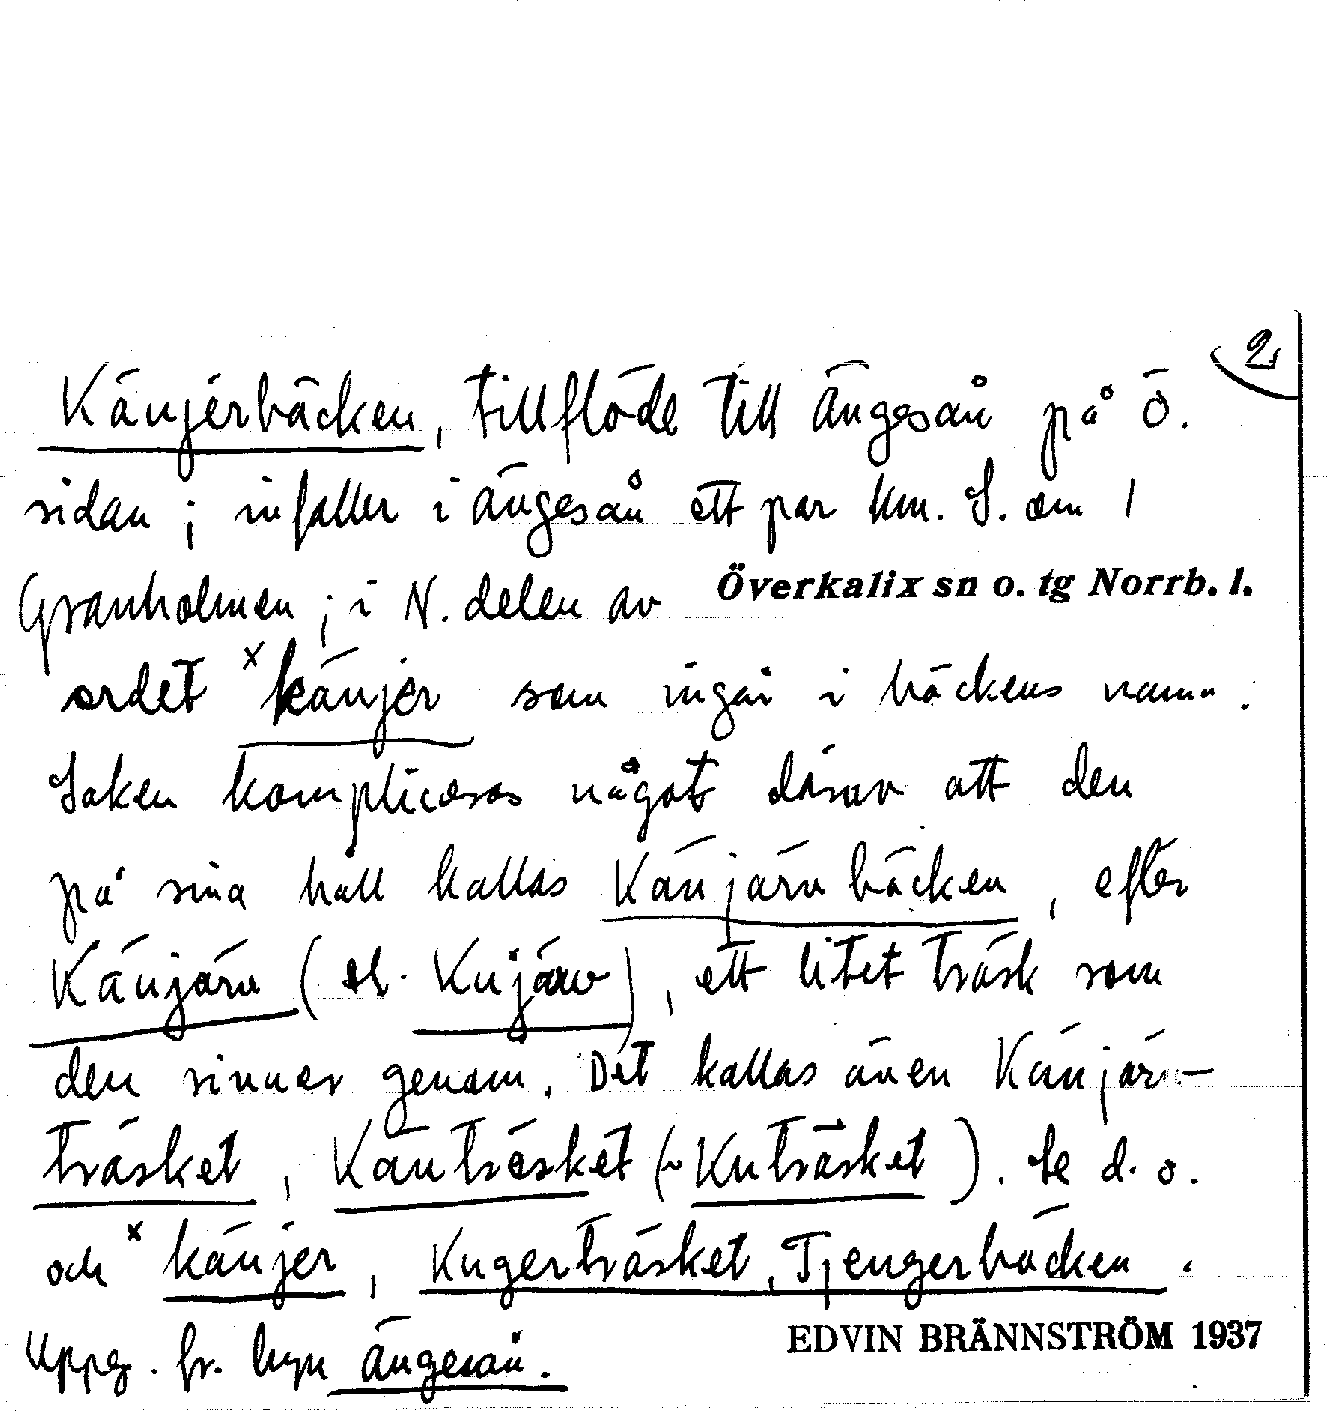 2
Känjerbäcken, tillflöde till Ängesån på Ö.
sidan; infaller i Ängesån ett par km. S. om
Granholmen; i N. delen av Överkalix sn o. tg Norrb. l.
ordet ˣkänjer som ingår i bäckens namn.
Saken kompliceras något därav att den
på sina håll kallas Känjärvbäcken, efter
Känjärv (el. Knijärv), ett litet träsk som
den rinner genom. Det kallas även Känjärv-
träsket, Känträsket (~ Knträsket). Se d. o.
och ˣkänjer, Kngerträsket, Tjengerbäcken.
Uppg. fr. byn Ängesån.
EDVIN BRÄNNSTRÖM 1937